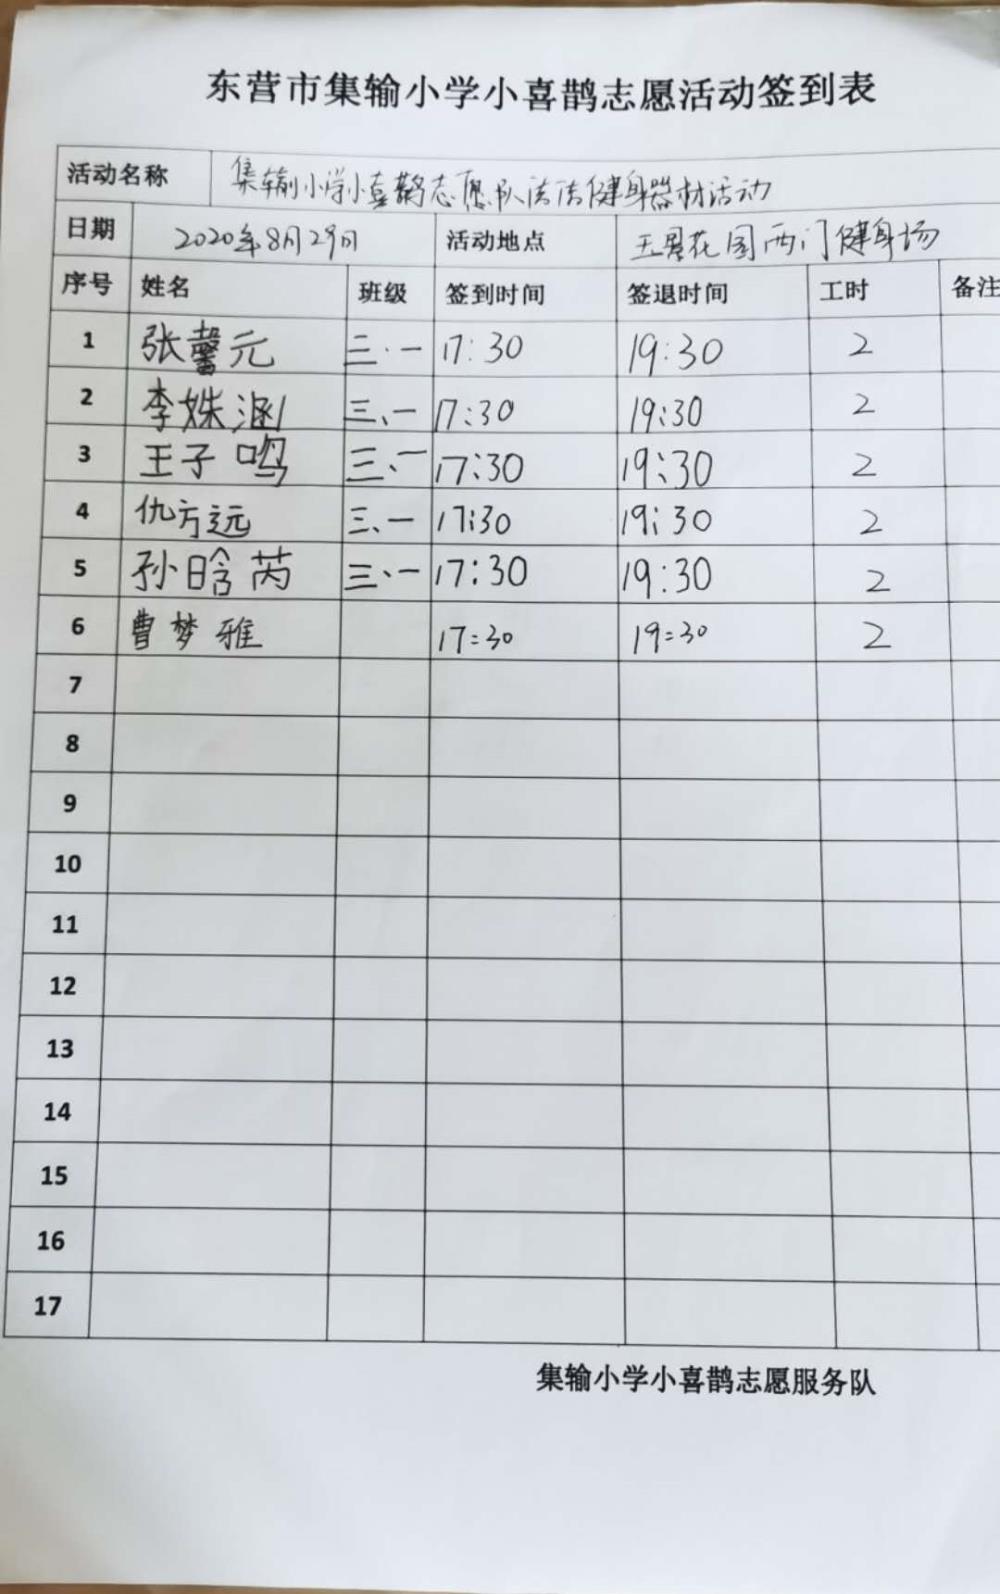 东营市集输小学小喜鹊志愿活动签到表
活动名称 集输小学小喜鹊志愿队清洁健身器材活动
日期 2020年8月29日 活动地点 花园西门健身场
序号 姓名 班级 签到时间 签退时间 工时 备注
1 张馨元 三.一 17:30 19:30 2
2 李姝涵 三、一 17:30 19:30 2
3 王子鸣 三、一 17:30 19:30 2
4 仇方远 三、一 17:30 19:30 2
5 孙晗芮 三、一 17:30 19:30 2
6 曹梦雅 17:30 19:30 2
7
8
9
10
11
12
13
14
15
16
17
集输小学小喜鹊志愿服务队